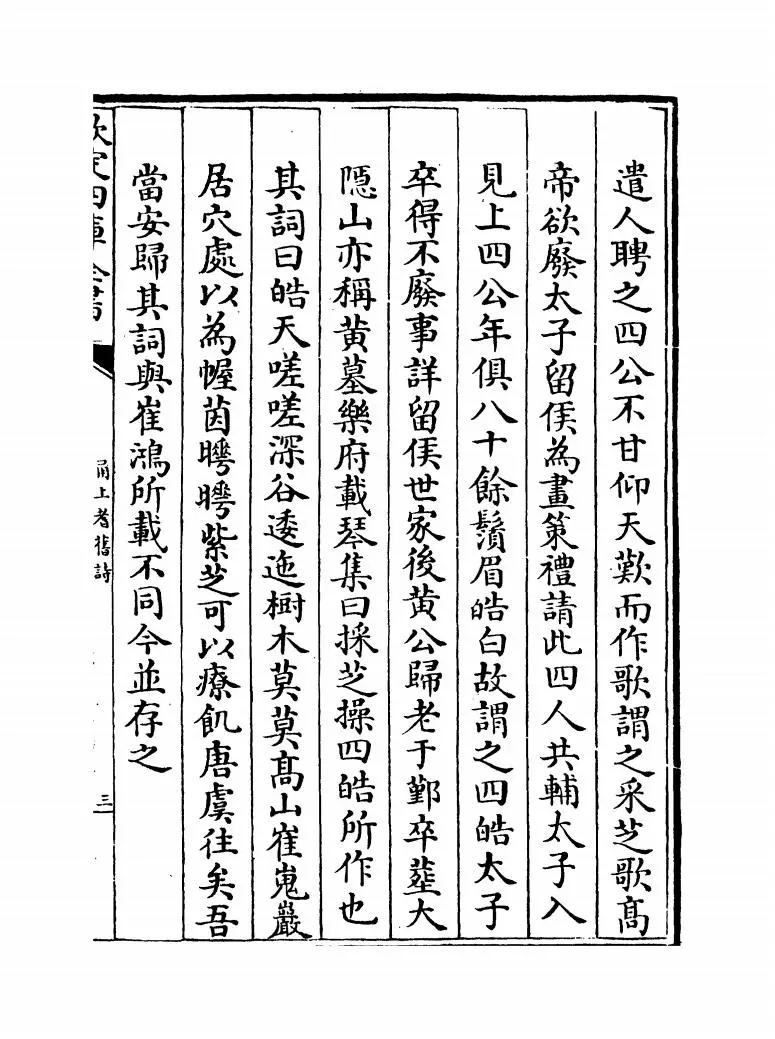 遣人聘之四公不甘仰天歎而作歌謂之采芝歌髙
帝欲廢太子留侯為畫策禮請此四人共輔太子入
見上四公年俱八十餘鬚眉皓白故謂之四皓太子
卒得不廢事詳留侯世家後黄公歸老于鄞卒塟大
隱山亦稱黄墓樂府載琴集曰採芝操四皓所作也
其詞曰皓天嗟嗟深谷逶迤樹木莫莫髙山崔嵬巖
居穴處以為幄茵曄曄紫芝可以療飢唐虞徃矣吾
當安歸其詞與崔鴻所載不同今並存之
欽定四庫全書
甬上耆舊詩
三